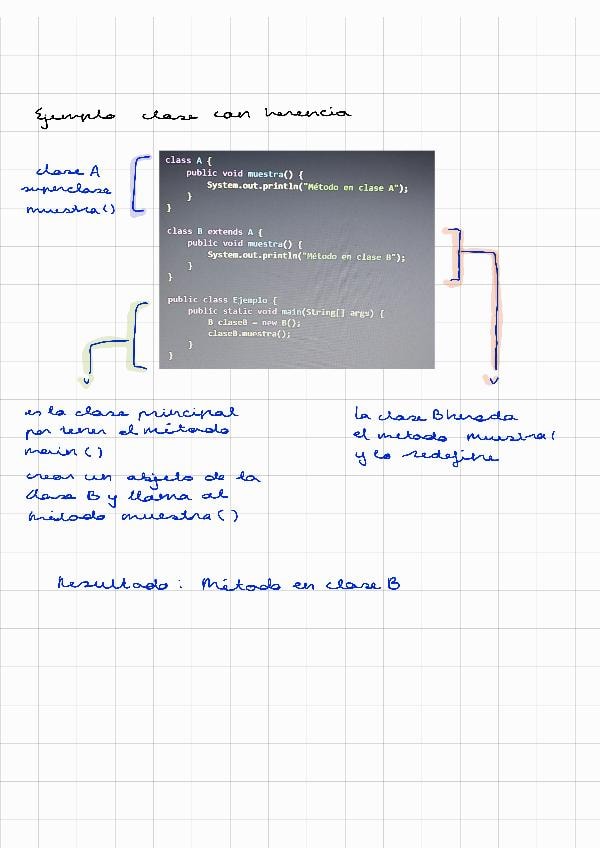 Ejemplo clase con herencia
clase A
superclase
muestra()
class A {
public void muestra() {
System.out.println("Método en clase A");
}
}
class B extends A {
public void muestra() {
System.out.println("Método en clase B");
}
}
public class Ejemplo {
public static void main(String[] args) {
B claseB = new B();
claseB.muestra();
}
}
es la clase principal
por tener el método
main()
crear un objeto de la
clase B y llama al
método muestra()
La clase B hereda
el metodo muestra(
y lo redefine
Resultado: Método en clase B